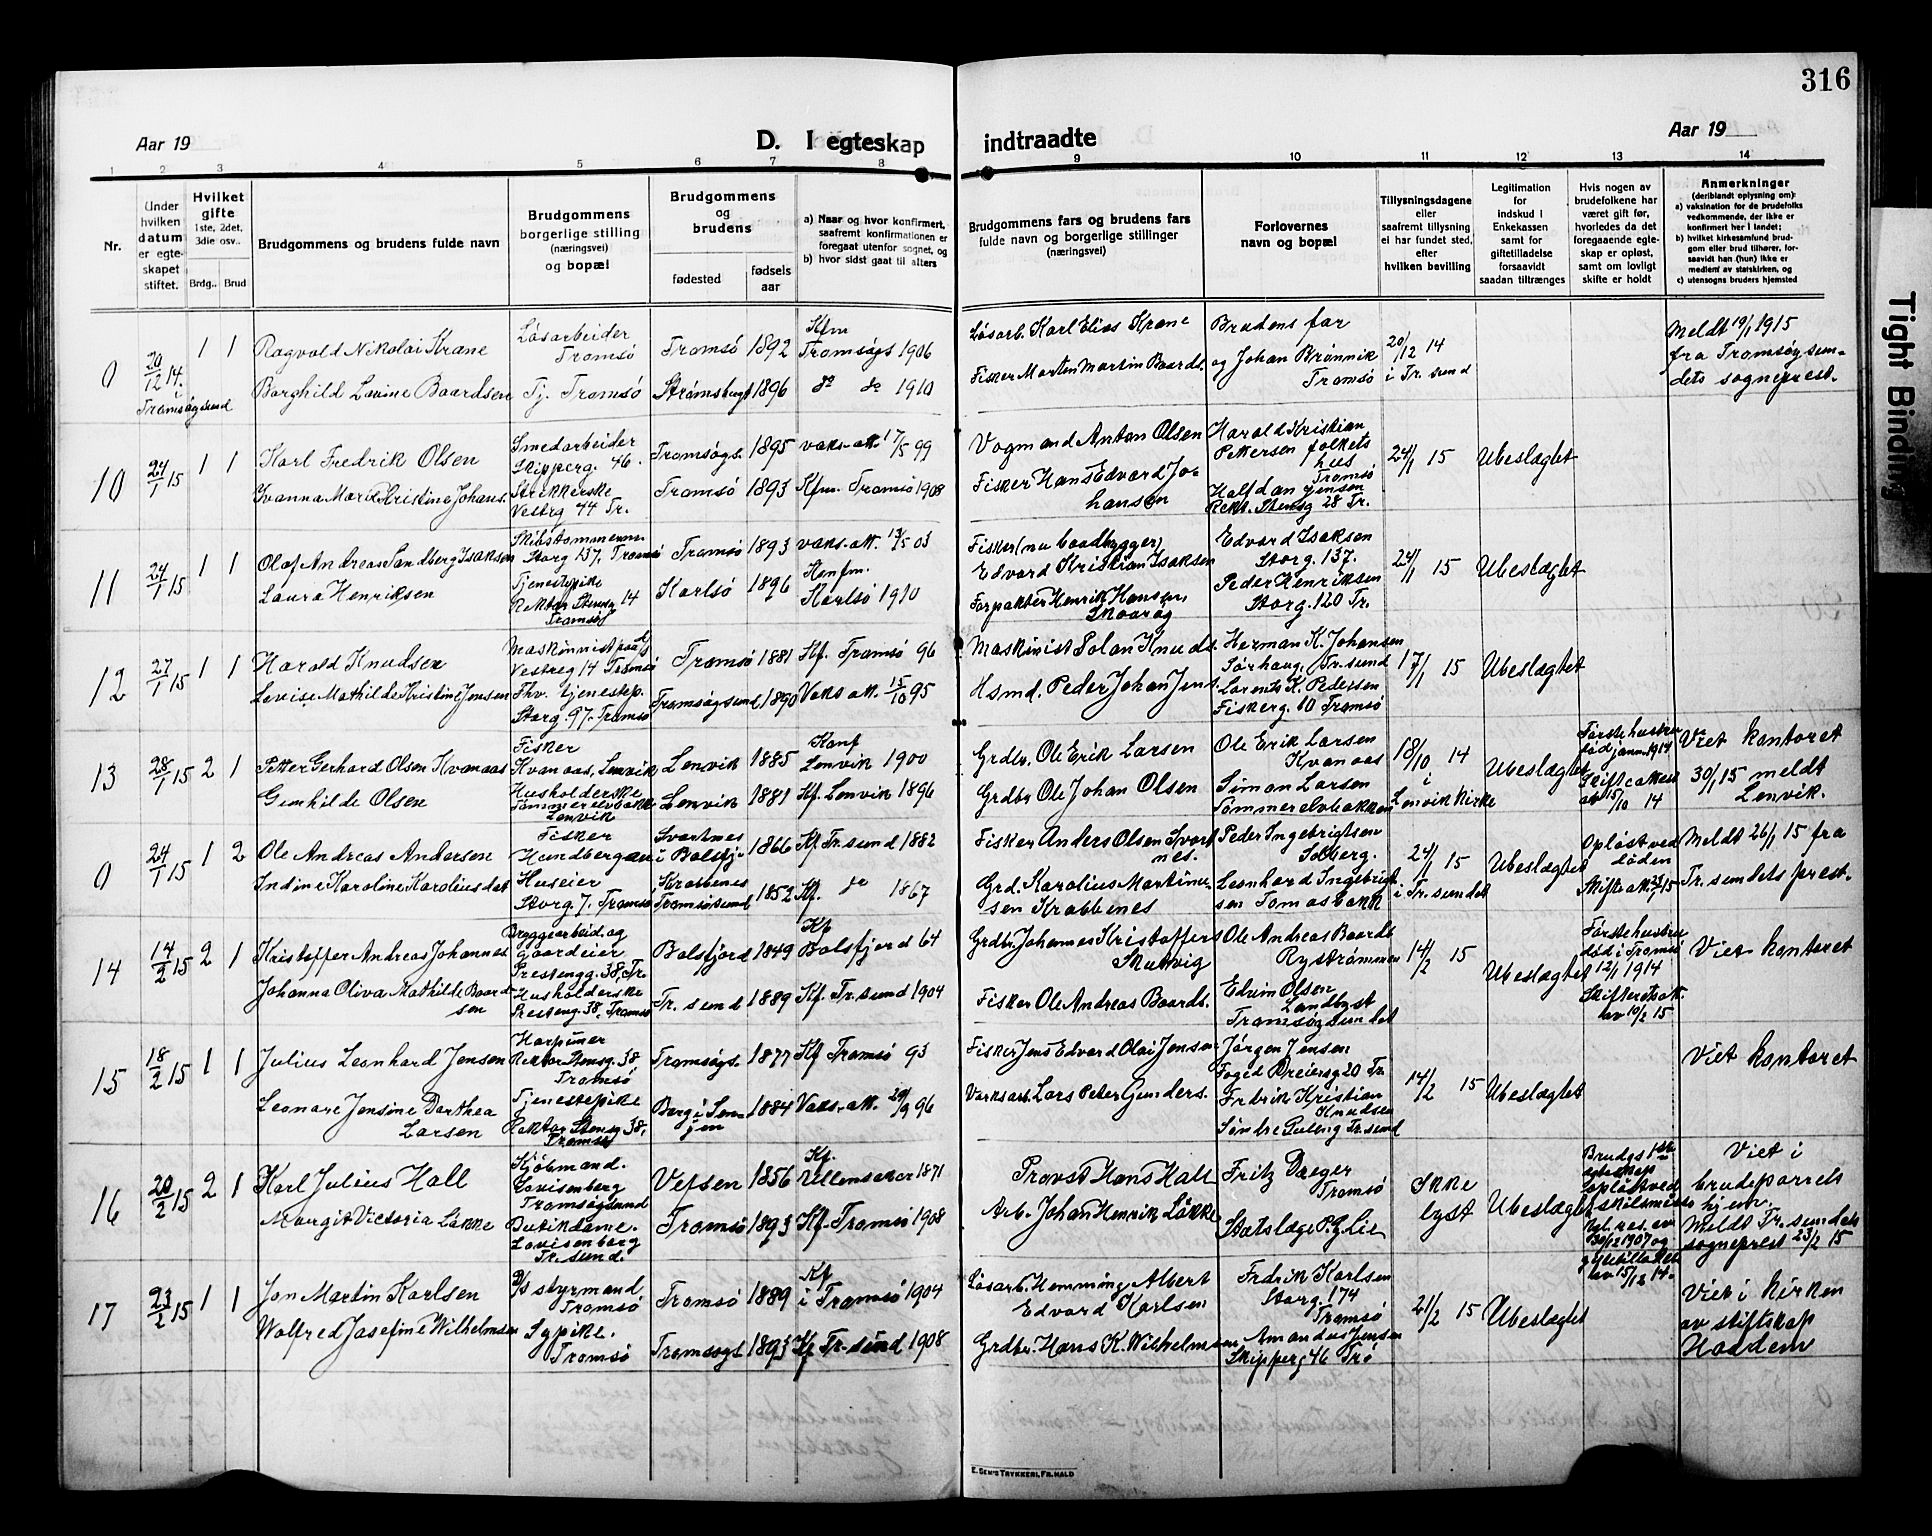 316
Aar 19
D. I egteskap
indtraadte
Aar 19
1 2 3 4 5 6 7 8 9 10 11 12 13 14
Nr.
Under
hvilken
datum
er egte-
skapet
stiftet.
Hvilket
gifte
1ste, 2det,
3die osv..
Brdg.. Brud
Brudgommens og brudens fulde navn
Brudgommens
borgerlige stilling
(næringsvei)
og bopæl
Brudgommens
og
brudens
fødested
fødsels
aar
a) Naar og hvor konfirmert,
saafremt konfirmationen er
foregaat utenfor sognet, og
b) hvor sidst gaat til alters
Brudgommens fars og brudens fars
fulde navn og borgerlige stillinger
(næringsvei)
Forlovernes
navn og bopæl
Tillysningsdagene
eller
saafremt tillysning
ei har fundet sted,
efter
hvilken bevilling
Legitimation
for
indskud i
Enkekassen
samt for
giftetilladelse
forsaavidt
saadan tiltrænges
Hvis nogen av
brudefolkene har
været gift før,
hvorledes da det
foregaaende egte-
skap er opløst,
samt om lovligt
skifte er holdt
Anmerkninger
(deriblandt oplysning om):
a) vaksination for de brudefolks
vedkommende, der ikke er
konfirmert her i landet;
b) hvilket kirkesamfund brud-
gom eller brud tilhører, for-
saavidt han (hun) ikke er
medlem av statskirken, og
c) utensogns bruders hjemsted
0
20/12 14.
i
Tromsøysund
1 1
Ragvald Nikolai Krane
Borghild Lovine Baardsen
Løsarbeider
Tromsø
Tj. Tromsø
Tromsø 1892
Strømsbugt 1896
Kfm
Tromsøgt 1906
do do 1910
Løsarb. Karl Elias Krane
Fisker Morten Martin Baards.
Brudens far
og Johan Brønnik
Tromsø
20/12 14
i Tr. sund
Meldt 19/1 1915
fra Tromsøysun-
dets sogneprest.
10
24/1 15
1 1
Karl Fredrik Olsen
Ivanna Marie Kristine Johans.
Smedarbeider
Skipperg. 46.
Strikkerske
Vestrg 44 Tr.
Tromsøgs. 1895
Tromsø 1893
vaks-att. 17/5 99
Kfm. Tromsø 1908
Vognmand Anton Olsen
Fisker Hans Edvard Jo-
hansen
Harald Kristian
Pettersen folkets
hus
Tromsø
Halfdan Jensen
Rekt. Stensg 28 Tr.
24/1 15
Ubeslægtet
11
24/1 15
1 1
Olaf Andreas Sandberg Isaksen
Laura Henriksen
Skibstømmerm
Storg 137, Tromsø
Tjenestepike
Rektor Stensg 14
Tromsø
Tromsø 1893
Karlsø 1896
vaks.att. 13/5 03
Konfm.
Karlsø 1910
Fisker (nu baadbygger)
Edvard Kristian Isaksen
Forpakter Henrik Hansen,
Skaarøg
Edvard Isaksen
Storg. 137.
Peder Henriksen
Storg. 120 Tr.
24/1 15
Ubeslægtet
12
27/1 15
1 1
Harald Knudsen
Lovise Mathilde Kristine Jensen
Vestreg 14 Tromsø
Fhv. tjenestep.
Storg. 97. Tromsø
Tromsø 1881
Tromsøysund 1890
Kf. Tromsø 96
Vaks att. 15/10 95
Maskinist Tolan Knuds.
Hsmd. Peder Johan Jens.
Herman K. Johansen
Sørhaug, Tr. sund
Lorents K. Pedersen
Fiskerg. 10 Tromsø
17/1 15
Ubeslægtet
13
28/1 15
2 1
Petter Gerhard Olsen Kvanaas
Gunhilde Olsen
Fisker
Kvanaas, Lenvik
Husholderske
Tømmerelvbakke
Lenvik
Lenvik 1885
Lenvik 1881
Konf
Lenvik 1900
Kf. Lenvik 1896
Grdbr. Ole Erik Larsen
Grdbr Ole Johan Olsen
Ole Erik Larsen
Kvanaas
Simon Larsen
Tømmerelvbakken
18/10 14
i
Lenvik Kirke
Ubeslægtet
Første hustru
død janu. 1914
Skifteattest
av 15/10 14
Viet kontoret
30/1 15 meldt
Lenvik.
0
24/1 15
1 2
Ole Andreas Andersen
Indine Karoline Karoliusdat
Fisker
Hundbergan
Huseier
Storg 7. Tromsø
Svartnes
i Balsfj. 1866
Krabbenes
Tromsøsund 1852
Kf. Tr. sund 1882
Kf. do 1867
Fisker Anders Olsen Svart
nes.
Grd. Karolius Martinu-
sen Krabbenes
Peder Ingebrigtsen
Solberg.
Leonhard Ingebrigt
sen Tomasbakk
24/1 15
i Tr. sundet
Ubeslægtet
Opløst ved
døden
Meldt 26/1 15 fra
Tr. sundets prest.
14
14/2 15
2 1
Kristoffer Andreas Johannes
Johanna Oliva Mathilde Baard
sen
Bryggearbeid. og
gaardeier
Prestengg. 38, Tr.
Husholderske
Presteng. 38, Tromsø
Balsfjord 1849
Tr. sund 1889
Kf
Balsfjord 64
Kf. Tr. sund 1904
Grdbr. Johannes Kristoffers
Skutvig
Fisker Ole Andreas Baards.
Ole Andreas Baards
Rystrømmen
Edvin Olsen
Landbyst
Tromsøysundet
14/2 15
Ubeslægtet
Første hustru
død i Tromsø
12/1 1914
Skifteretsatt.
av 10/2 15
Viet kontoret
15
18/2 15
1 1
Julius Leonhard Jensen
Leonare Jensine Dorthea
Larsen
Harpuner
Rektor Stensg. 38
Tromsø
Tjenestepike
Rektor Stensg 38,
Tromsø
Tromsøgs. 1877
Berg i Sen-
jen 1884
Kf Tromsø 93
Vaks-att. 20/9 96
Fisker Jens Edvard Olai Jensen
Verksarb. Lars Peter Gunders.
Jørgen Jensen
Foged Dreiersg 20 Tr.
Fredrik Kristian
Knudsen
14/2 15
Ubeslægtet
Viet kontoret
16
20/2 15
2 1
Karl Julius Hall
Margit Victoria Løkke
Kjøbmand.
Lovisenberg
Tromsøysund
Butikdame.
Lovisenborg
Tr. sund.
Vefsen 1856
Tromsø 1893
Kf.
Ullensaker 1871
Kf. Tromsø 1908
Provst Hans Hall
Arb. Johan Henrik Løkke
Fritz Dreyer
Tromsø
Statslæge P. G. Lie
Ikke
lyst
Ubeslægtet
Brudgs 1ste
egteskap
opløst ved
skilsmisse
kgl. res. av
30/12 1907 og
giftetilladelse
av 15/12 14.
Viet i
brudeparrets
hjem.
Meldt Tr. sundets
sogneprest 23/2 15
17
23/2 15
1 1
Jon Martin Karlsen
Wolfred Josefine Wilhelmsen
styrmand,
Tromsø
Sypike.
Tromsø
Tromsø 1889
Tromsøgt 1893
Kf
i Tromsø 1904
Kf Tr. sund 1908
Løsarb. Hemming Albert
Edvard Karlsen
Grdbr. Hans K. Wilhelmsen
Fredrik Karlsen
Storg. 174
Tromsø
Amandus Jensen
Skipperg 46 Trø
21/2 15
Ubeslægtet
Viet i kirken
av stiftskap
Hoddem
E. GEN'S TRYKKERI, FR. HALD
Tight Binding